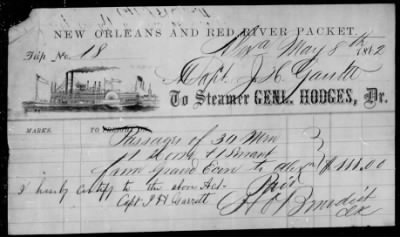 NEW ORLEANS AND RED RIVER PACKET.
Trip No. 18 Alxa May 8th 1862
Capt. J. H. Garrett
To Steamer GENL. HODGES, Dr.
MARKS. TO
Passages of 34 Men
& 1 Servant
from Grand Ecore to Alex $111.00
I hereby certify to the above Act Paid
Capt J H Garrett H O Benedict
Clk